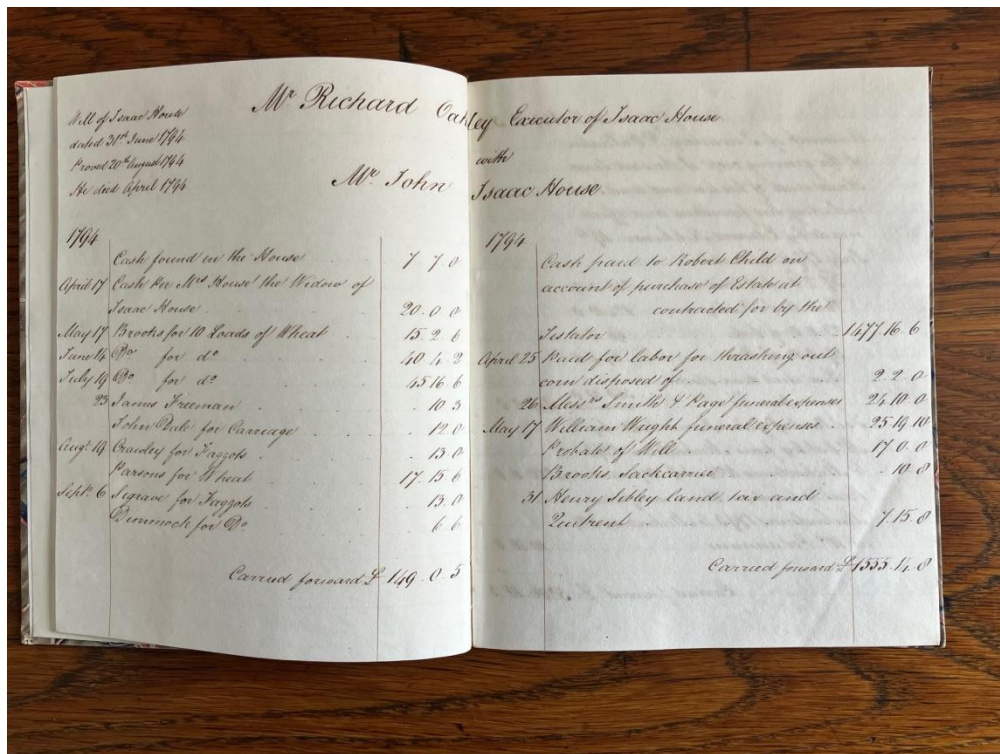 Will of Isaac House
dated 31st June 1794
Proved 20th August 1794
He died April 1794
Mr Richard Oakley Executor of Isaac House
with
Mr. John Isaac House
1794
Cash found in the House 7. 7. 0
April 17 Cash Per Mrs House the Widow of
Isaac House 20. 0. 0
May 17 Brooks for 10 Loads of Wheat 15. 2. 6
June 14 Do for do 40. 4. 2
July 19 Do for do 45. 16. 6
23 James Freeman 10. 3
John Dale for Carriage 12. 0
Augt. 19 Crawley for Faggots 13. 0
Parsons for Wheat 17. 15. 6
Septr. 6 Segrave for Faggots 13. 0
Dimmock for Do 6. 6
Carried forward £ 149. 0. 5
1794
Cash paid to Robert Child on
account of purchase of Estate at
contracted for by the
Testator 1477. 16. 6
April 25 Paid for labor for thrashing out
corn disposed of 2. 2. 0
26 Messrs Smith & Page funeral expenses 24. 10. 0
May 17 William Wright funeral expenses 25. 19. 10
Probate of Will 17. 0. 0
Brooks Sackcarrier 10. 8
31 Henry Sibley land tax and
Quitrent 7. 15. 8
Carried forward £ 1555. 14. 8